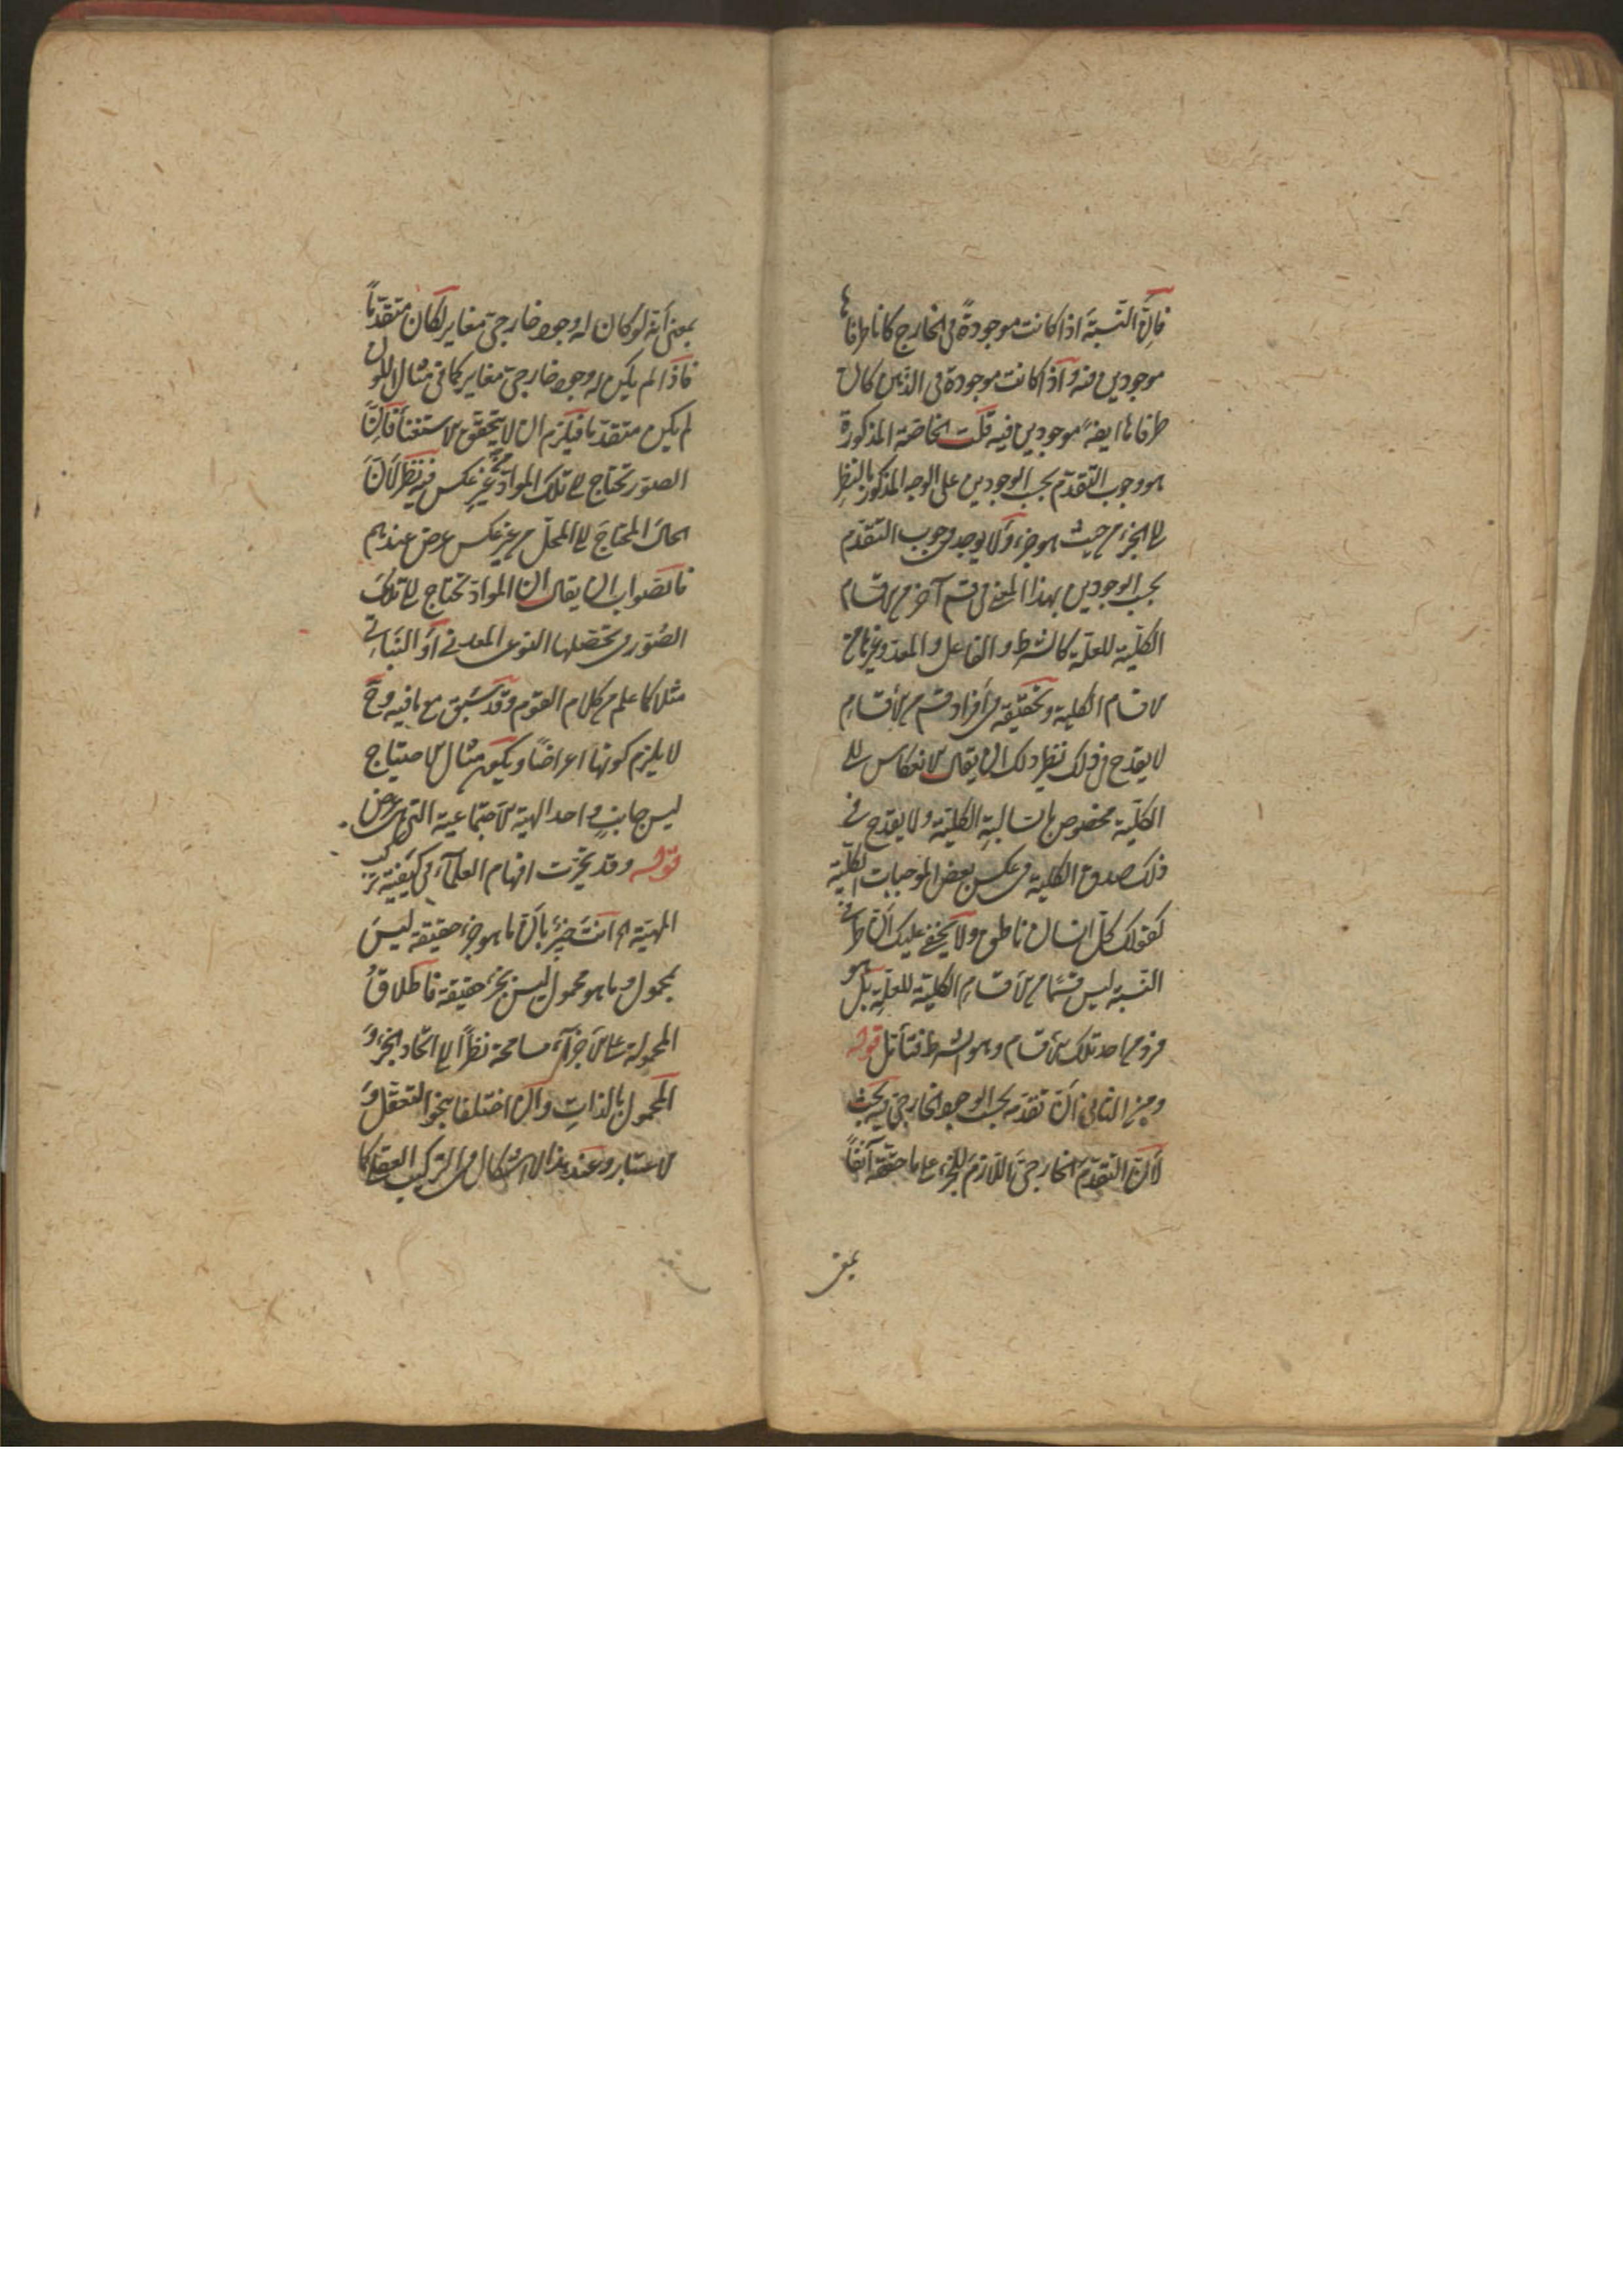 فإنّ النسبة اذا كانت موجودةً فى الخارج كانا طرفاها
موجودين فيه واذا كانت موجودة فى الذهن كان
طرفاها ايضا موجودين فيه قلت الخاصّة المذكورة
هو وجوب التقدّم بحسب الوجودين على الوجه المذكور بالنظر
الى الجزء من حيث هو جزء ولا يوجد وجوب التقدّم
بحسب الوجودين بهذا المعنى فى قسم آخر من الاقسام
الكليّة للعلّة كالشرط والفاعل والمعد وغيرها من
الاقسام الكلية وتحققه فى أفراد قسم من الأقسام
لا يقدح فى ذلك نظير ذلك ان يقال الانعكاس الى
الكليّة مخصوص بالسالبة الكليّة ولا يقدح فى
ذلك صدق الكلية فى عكس بعض الموجبات الكلّية
كقولك كلّ انسان ناطق ولا يخفى عليك أنّ طرفى
النسبة ليس قسمًا من الأقسام الكلية للعلّة بل هو
فرد من احد تلك الأقسام وهو الشرط فتأمّل قوله
وميز الثانى انّ تقدّمه بحسب الوجود الخارجىّ ليس يجب
لأنّ التقدّم الخارجىّ اللازم للجزء على ما حقّقه آنفاً
بمعنى
بمعنى أنّه لو كان له وجود خارجىّ مغاير لكان متقدّماً
فاذا لم يكن له وجود خارجىّ مغاير كما فى مثال اللون
لم يكن متقدّما فيلزم ان لا يتحقق الاستغناء فإنّ
الصور تحتاج الى تلك الموادّ من غير عكس فيه نظر لأنّ
الحالّ المحتاج الى المحلّ من غير عكس عرض عندهم
فالصواب ان يقال ان الموادّ تحتاج الى تلك
الصّور فى تحصّلها النوع المعدنى أو النباتى
مثلا كما علم من كلام القوم وقد سبق مع ما فيه وح
لا يلزم كونها اعراضًا ويكون مثال الاحتياج
ليس جانبٍ واحد الهيئة الاجتماعية التى هى عرض
قوله وقد تحيّرت افهام العلمآء فى كيفيّة تركيب
المهيّة اه أنت خبيرٌ بأنّ ما هو جزء حقيقة ليس
بمحمول وما هو محمول ليس بجزء حقيقة فاطلاق
المحمولة على الأجزآء مسامحة نظراً الى اتّحاد الجزء و
المحمول بالذات وان اختلفا بنحو التعقّل و
الاعتبار وعند هذا الاشكال فى التركيب العقلى كما